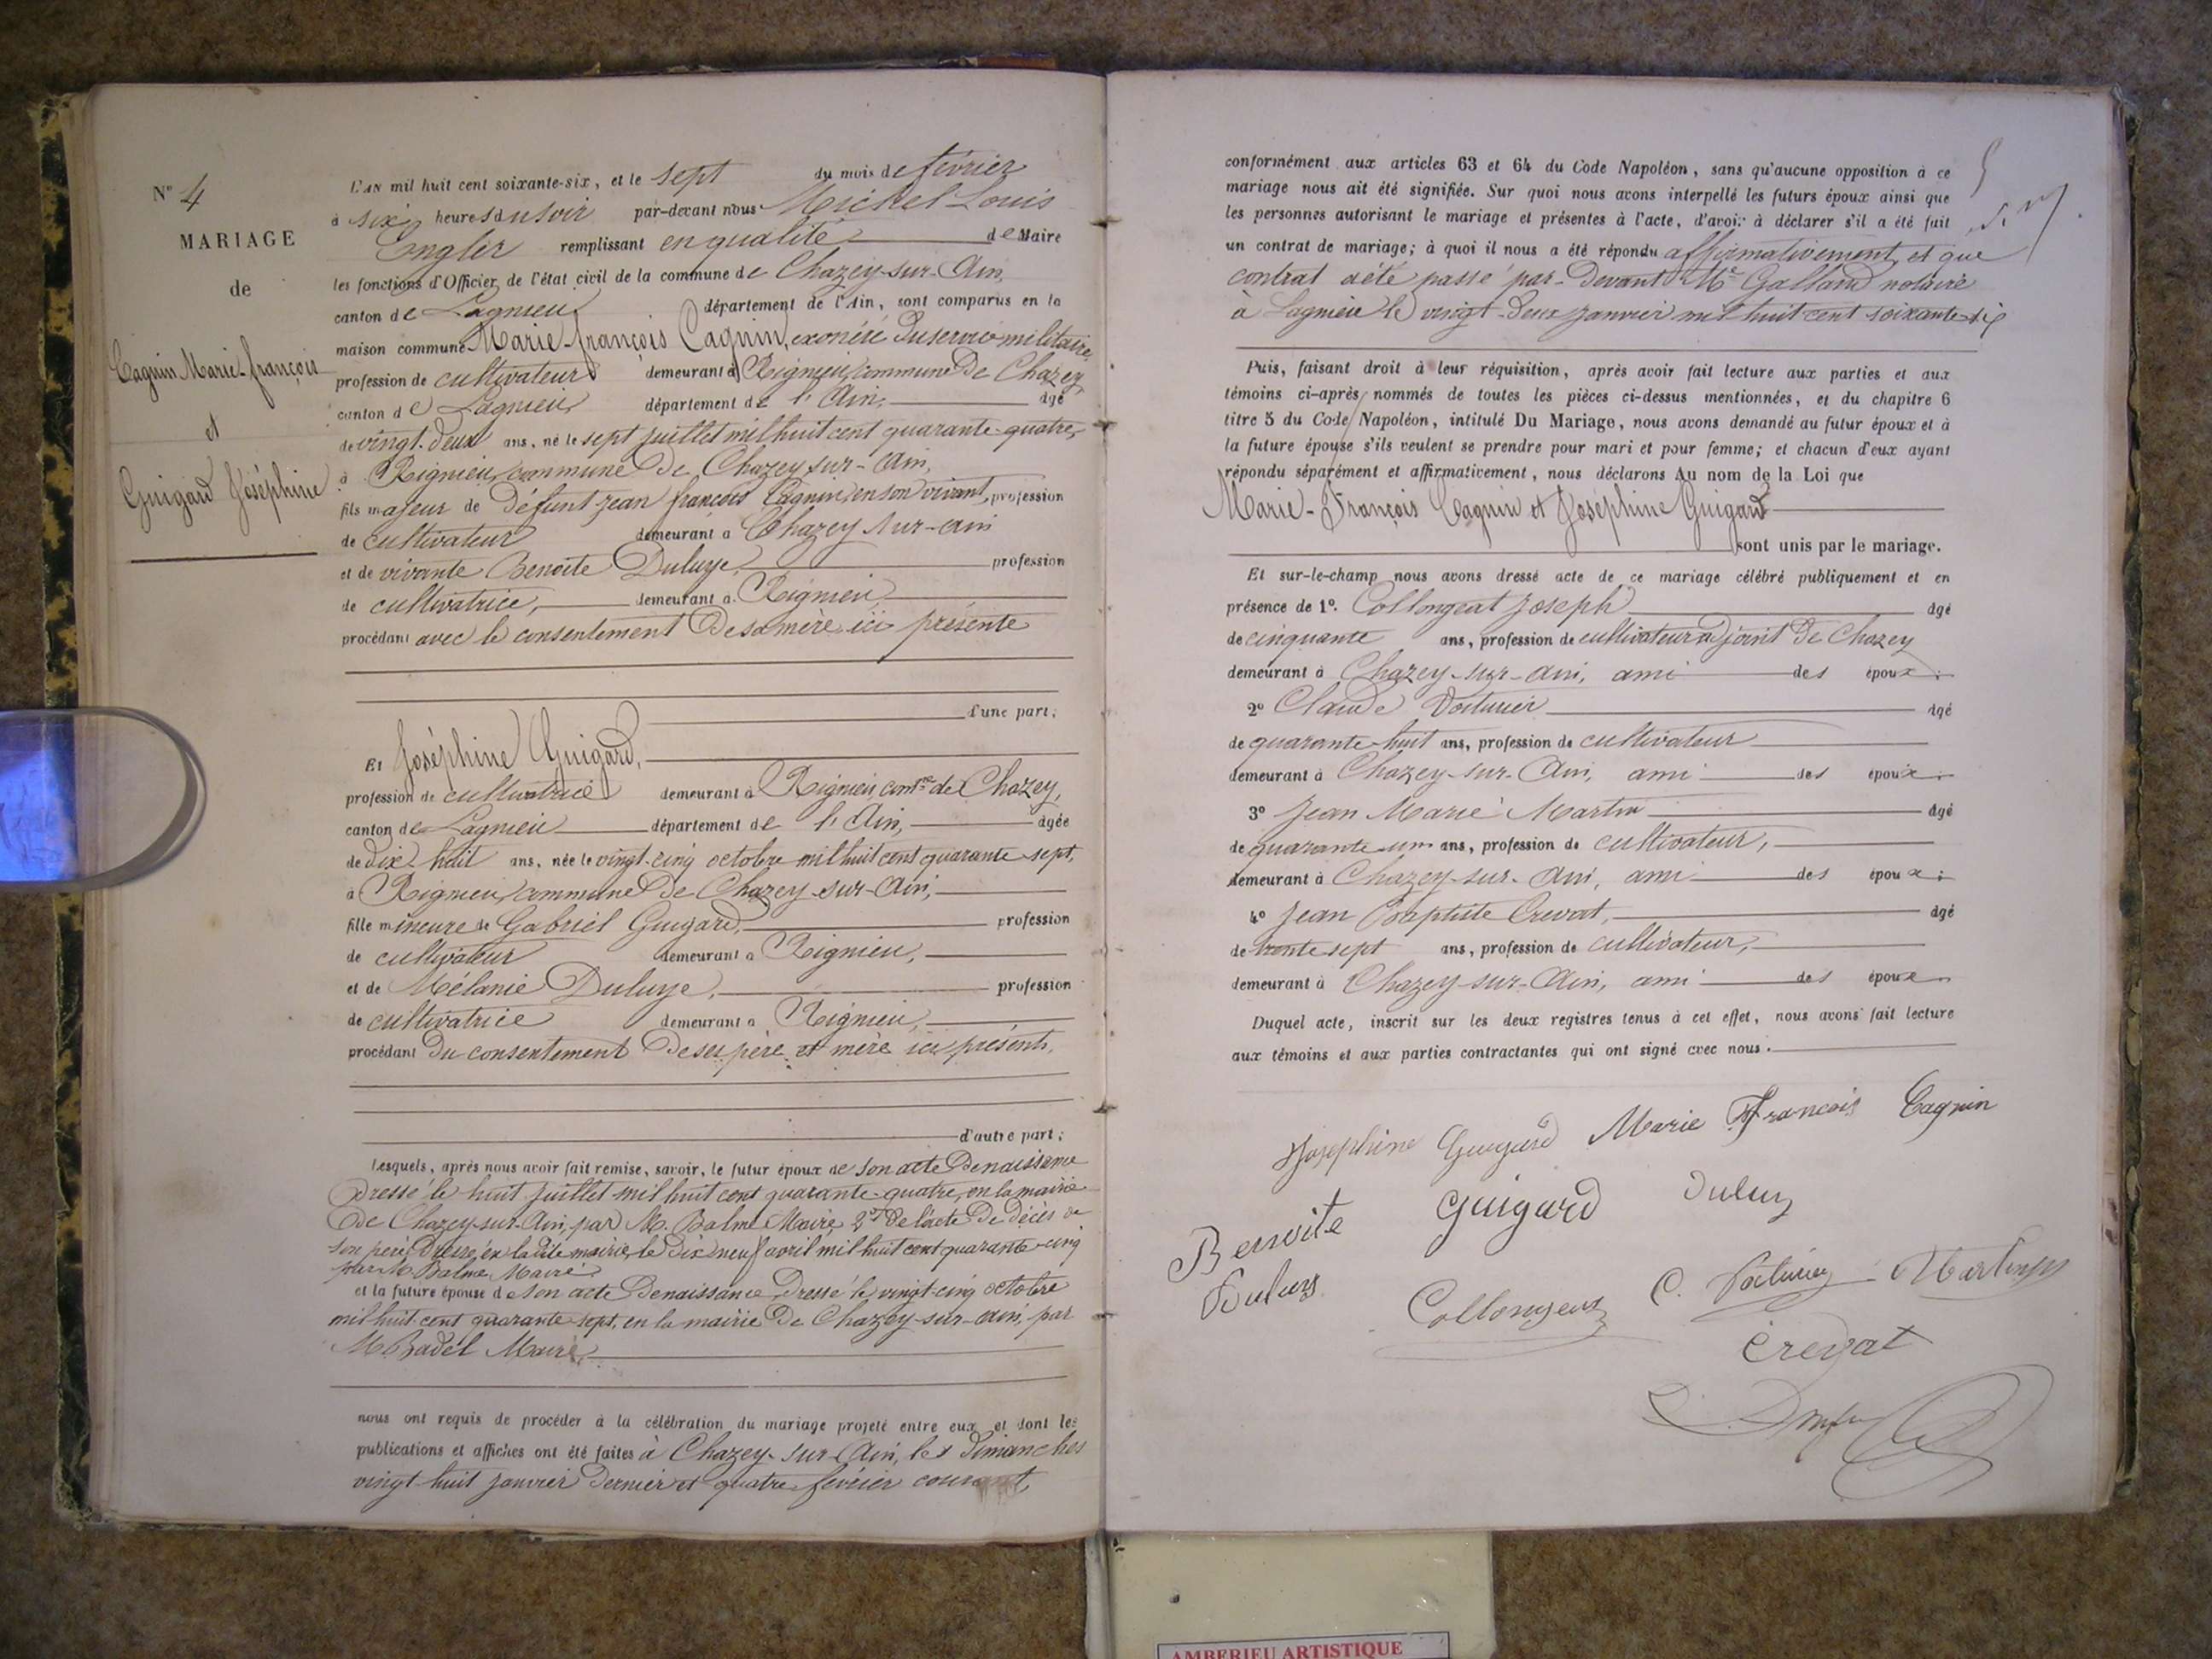 N° 4
MARIAGE
de
Cagnin Marie-françois
et
Guigard Joséphine
L'AN mil huit cent soixante-six, et le sept du mois de février
à six heures du soir par-devant nous Michel Louis
Engler remplissant en qualité de Maire
les fonctions d'Officier de l'état civil de la commune de Chazey-sur-Ain,
canton de Lagnieu département de l'Ain, sont comparus en la
maison commune Marie-françois Cagnin, exonéré du service militaire,
profession de cultivateur demeurant à Rignieu commune de Chazey,
canton de Lagnieu, département de l'Ain, âgé
de vingt-deux ans, né le sept juillet mil huit cent quarante-quatre,
à Rignieu commune de Chazey-sur-Ain,
fils majeur de défunt Jean françois Cagnin en son vivant, profession
de cultivateur demeurant à Chazey sur-ain
et de vivante Benoîte Duluye, profession
de cultivatrice, demeurant à Rignieu,
procédant avec le consentement de sa mère ici présente
d'une part;
Et Joséphine Guigard,
profession de cultivatrice demeurant à Rignieu comne de Chazey,
canton de Lagnieu département de l'Ain, âgée
de dix-huit ans, née le vingt-cinq octobre mil huit cent quarante-sept,
à Rignieu commune de Chazey-sur-Ain,
fille mineure de Gabriel Guigard, profession
de cultivateur demeurant à Rignieu,
et de Mélanie Duluye, profession
de cultivatrice demeurant à Rignieu,
procédant du consentement de ses père et mère ici présents,
d'autre part;
Lesquels, après nous avoir fait remise, savoir, le futur époux de son acte de naissance
dressé le huit juillet mil huit cent quarante-quatre, en la mairie
de Chazey-sur-Ain, par M. Balme Maire, 2° de l'acte de décès de
son père, dressé en la dite mairie, le dix neuf avril mil huit cent quarante-cinq
par M. Balme Maire
et la future épouse de son acte de naissance, dressé le vingt-cinq octobre
mil huit cent quarante-sept, en la mairie de Chazey-sur-ain, par
M. Badel Maire,
nous ont requis de procéder à la célébration du mariage projeté entre eux et dont les
publications et affiches ont été faites à Chazey-sur-Ain, les dimanches
vingt-huit janvier dernier et quatre février courant,
conformément aux articles 63 et 64 du Code Napoléon, sans qu'aucune opposition à ce
mariage nous ait été signifiée. Sur quoi nous avons interpellé les futurs époux ainsi que
les personnes autorisant le mariage et présentes à l'acte, d'avoir à déclarer s'il a été fait
un contrat de mariage; à quoi il nous a été répondu affirmativement, et que
contrat a été passé par-devant Me Galland notaire
à Lagnieu le vingt-deux janvier mil huit cent soixante-six
Puis, faisant droit à leur réquisition, après avoir fait lecture aux parties et aux
témoins ci-après nommés de toutes les pièces ci-dessus mentionnées, et du chapitre 6
titre 5 du Code Napoléon, intitulé Du Mariage, nous avons demandé au futur époux et à
la future épouse s'ils veulent se prendre pour mari et pour femme; et chacun d'eux ayant
répondu séparément et affirmativement, nous déclarons Au nom de la Loi que
Marie-François Cagnin et Joséphine Guigard
sont unis par le mariage.
Et sur-le-champ nous avons dressé acte de ce mariage célébré publiquement et en
présence de 1°. Collongeat Joseph âgé
de cinquante ans, profession de cultivateur adjoint de Chazey
demeurant à Chazey-sur-Ain, ami des époux;
2° Claude Voiturier âgé
de quarante-huit ans, profession de cultivateur
demeurant à Chazey-sur-Ain, ami des époux;
3° Jean Marie Martin âgé
de quarante-un ans, profession de cultivateur,
demeurant à Chazey-sur-Ain, ami des époux;
4° Jean Baptiste Crevat, âgé
de trente sept ans, profession de cultivateur,
demeurant à Chazey-sur-Ain, ami des époux
Duquel acte, inscrit sur les deux registres tenus à cet effet, nous avons fait lecture
aux témoins et aux parties contractantes qui ont signé avec nous.
Josephine Guigard Marie François Cagnin
Benoite Guigard Duluy
Duluys Collongeat C. Voiturier Martin
Crevat
AMBERIEU ARTISTIQUE